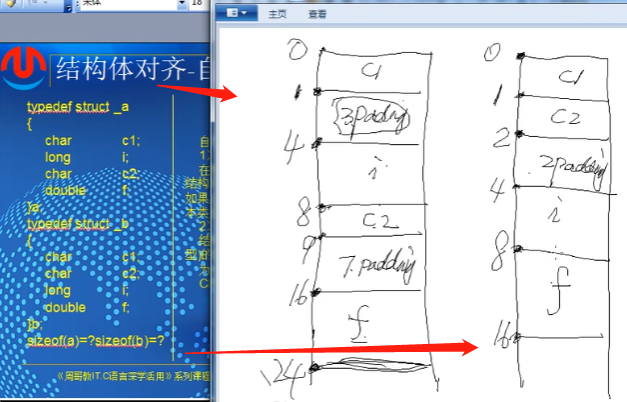 宋体 18
主页 查看
结构体对齐-自
typedef struct _a
{
char c1;
long i;
char c2;
double f;
}a;
typedef struct _b
{
char c1;
char c2;
long i;
double f;
}b;
sizeof(a)=?sizeof(b)=?
《周哥教IT.C语言深学活用》系列课程
自
1
在
结构
如果
本类
2
结
型)的
为
C
0
C1
1
3padding
4
i
8
C2
9
7.padding
16
f
24
0
C1
1
C2
2
2padding
4
i
8
f
16